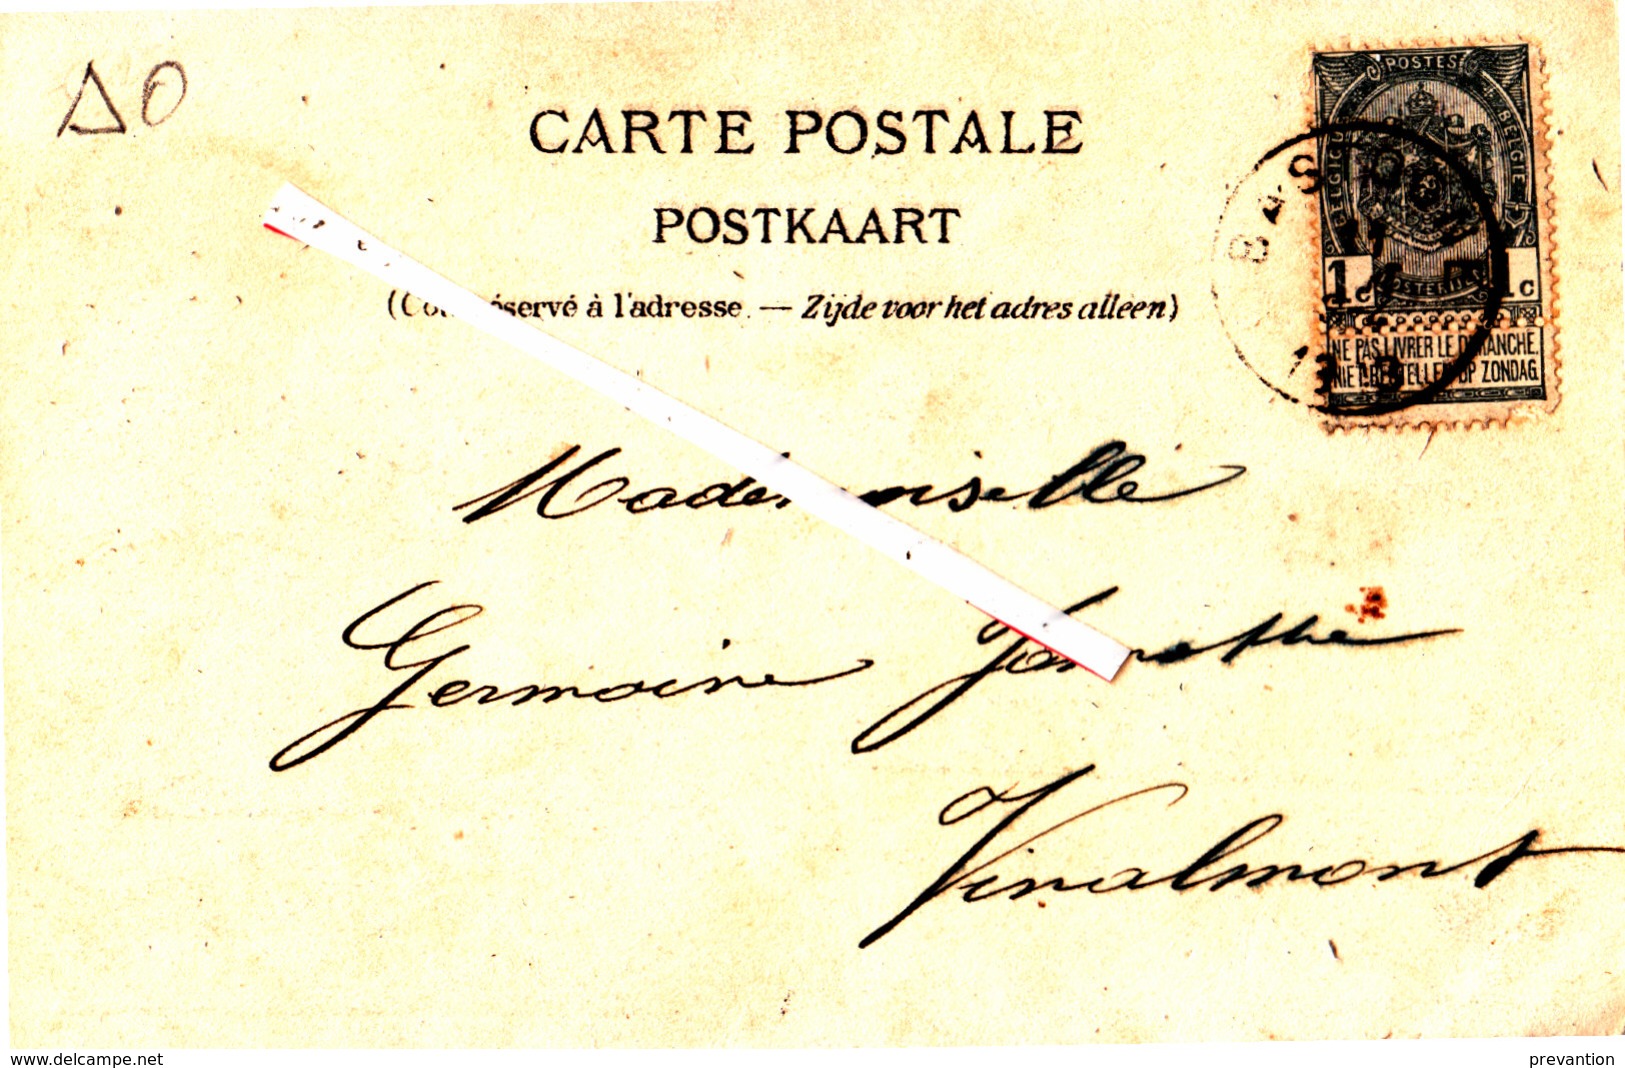 ΔO
CARTE POSTALE
POSTKAART
réservé à l'adresse. — Zijde voor het adres alleen)
POSTES
BELGIQUE
BELGIE
POSTERIJEN
1c 1c
NE PAS LIVRER LE DIMANCHE.
NIET BESTELLEN OP ZONDAG.
Mademoiselle
Germaine
Vinalmont
www.delcampe.net
prevantion